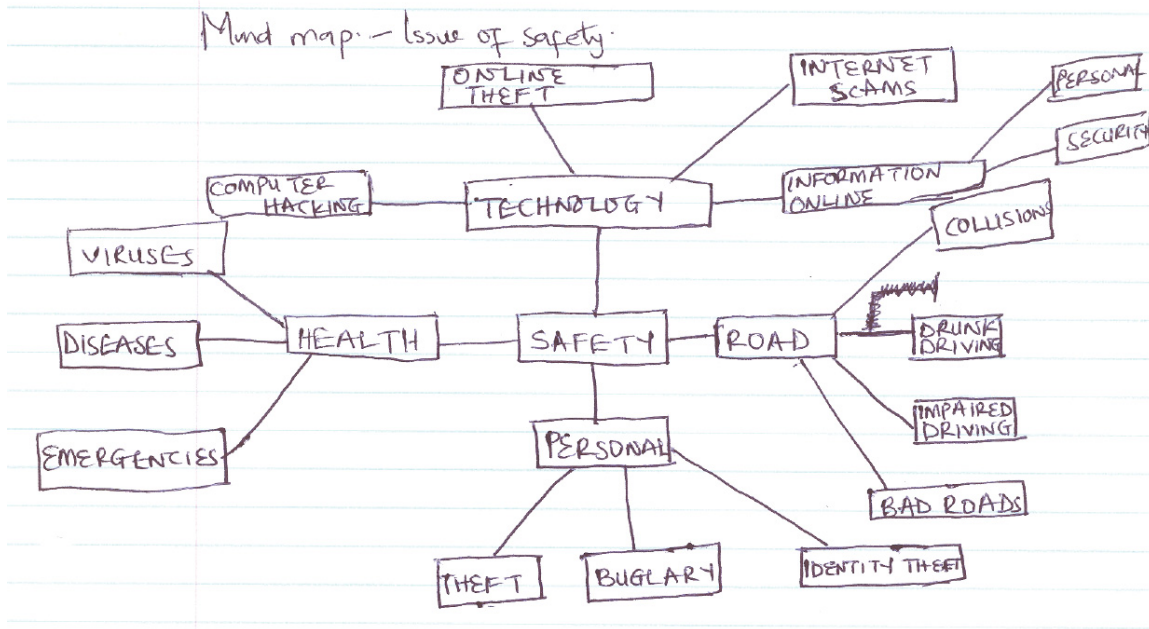 Mind map. - Issue of safety.
ONLINE
THEFT
INTERNET
SCAMS
PERSONAL
SECURITY
COMPUTER
HACKING
TECHNOLOGY
INFORMATION
ONLINE
COLLISIONS
VIRUSES
DISEASES
HEALTH
SAFETY
ROAD
DRUNK
DRIVING
IMPAIRED
DRIVING
EMERGENCIES
PERSONAL
BAD ROADS
THEFT
BUGLARY
IDENTITY THEFT